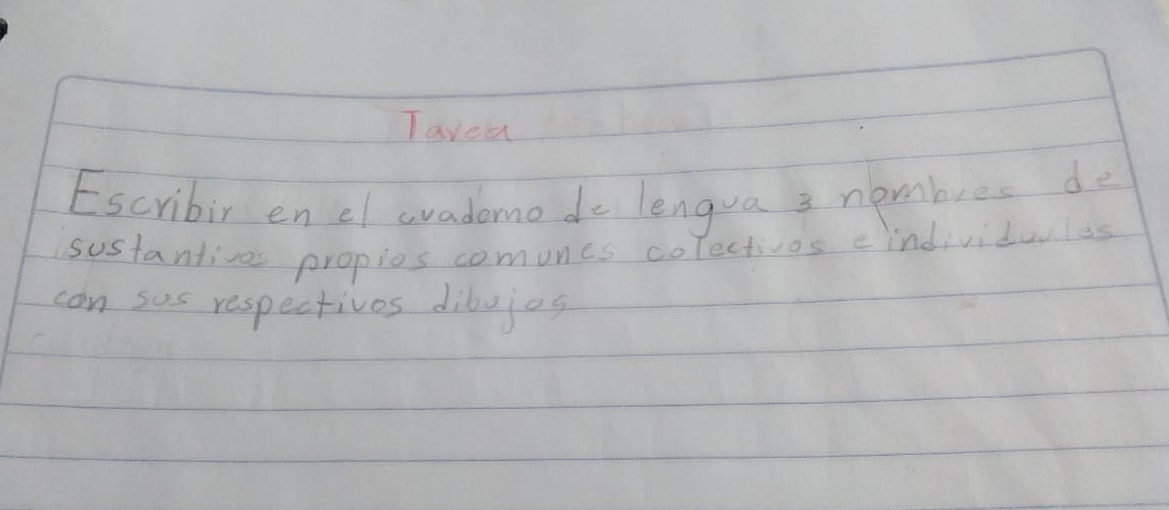 Tarea
Escribir en el cuaderno de lengua 3 nombres de
sustantivos propios comunes colectivos e individuales
con sus respectivos dibujos